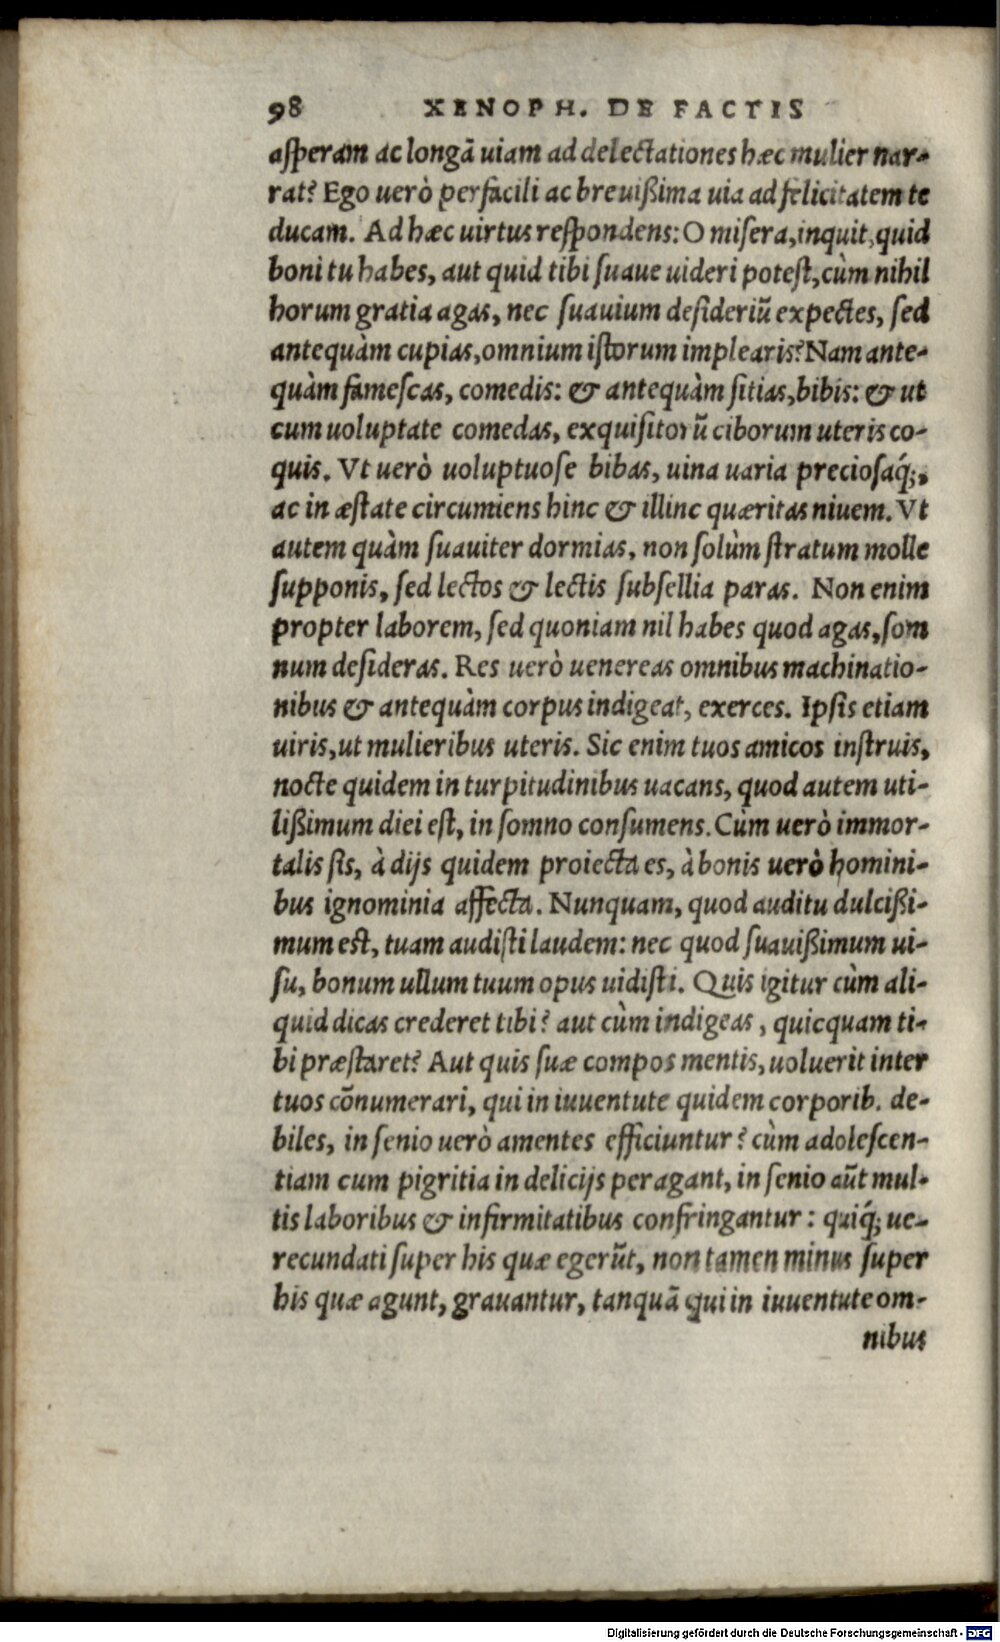 98 XENOPH. DE FACTIS
aſperam ac longã uiam ad delectationes hæc mulier nar-
rat? Ego uerò perfacili ac breuißima uia ad felicitatem te
ducam. Ad hæc uirtus reſpondens: O miſera, inquit, quid
boni tu habes, aut quid tibi ſuaue uideri poteſt, cùm nihil
horum gratia agas, nec ſuauium deſideriũ expectes, ſed
antequàm cupias, omnium iſtorum implearis? Nam ante-
quàm fameſcas, comedis: & antequàm ſitias, bibis: & ut
cum uoluptate comedas, exquiſitorũ ciborum uteris co-
quis. Vt uerò uoluptuoſe bibas, uina uaria precioſaq́;,
ac in æſtate circumiens hinc & illinc quæritas niuem. Vt
autem quàm ſuauiter dormias, non ſolùm ſtratum molle
ſupponis, ſed lectos & lectis ſubſellia paras. Non enim
propter laborem, ſed quoniam nil habes quod agas, ſom
num deſideras. Res uerò uenereas omnibus machinatio-
nibus & antequàm corpus indigeat, exerces. Ipſis etiam
uiris, ut mulieribus uteris. Sic enim tuos amicos inſtruis,
nocte quidem in turpitudinibus uacans, quod autem uti-
lißimum diei eſt, in ſomno conſumens. Cùm uerò immor-
talis ſis, à dijs quidem proiecta es, à bonis uerò homini-
bus ignominia affecta. Nunquam, quod auditu dulcißi-
mum eſt, tuam audiſti laudem: nec quod ſuauißimum ui-
ſu, bonum ullum tuum opus uidiſti. Quis igitur cùm ali-
quid dicas crederet tibi? aut cùm indigeas, quicquam ti-
bi præſtaret? Aut quis ſuæ compos mentis, uoluerit inter
tuos cõnumerari, qui in iuuentute quidem corporib. de-
biles, in ſenio uerò amentes efficiuntur? cùm adoleſcen-
tiam cum pigritia in delicijs peragant, in ſenio aũt mul-
tis laboribus & infirmitatibus confringantur: quiq́; ue-
recundati ſuper his quæ egerũt, non tamen minus ſuper
his quæ agunt, grauantur, tanquã qui in iuuentute om-
nibus
Digitalisierung gefördert durch die Deutsche Forschungsgemeinschaft - DFG